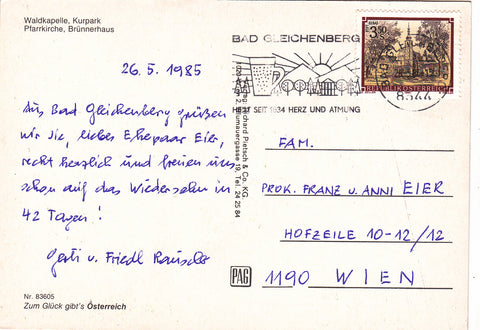 Waldkapelle, Kurpark
Pfarrkirche, Brünnerhaus
26. 5. 1985
Aus Bad Gleichenberg grüßen
wir Sie, liebes Ehepaar Eier,
recht herzlich und freuen uns
schon auf das Wiedersehn in
42 Tagen!
Gerti u. Friedl
Nr. 83605
Zum Glück gibt's Österreich
BAD GLEICHENBERG
SEIT 1834 HERZ UND ATMUNG
3.50
REPUBLIK ÖSTERREICH
8344
Pietsch & Co. KG.
Tel. 24 25 84
PAG
FAM.
PROK. FRANZ U. ANNI EIER
HOFZEILE 10-12/12
1190 WIEN